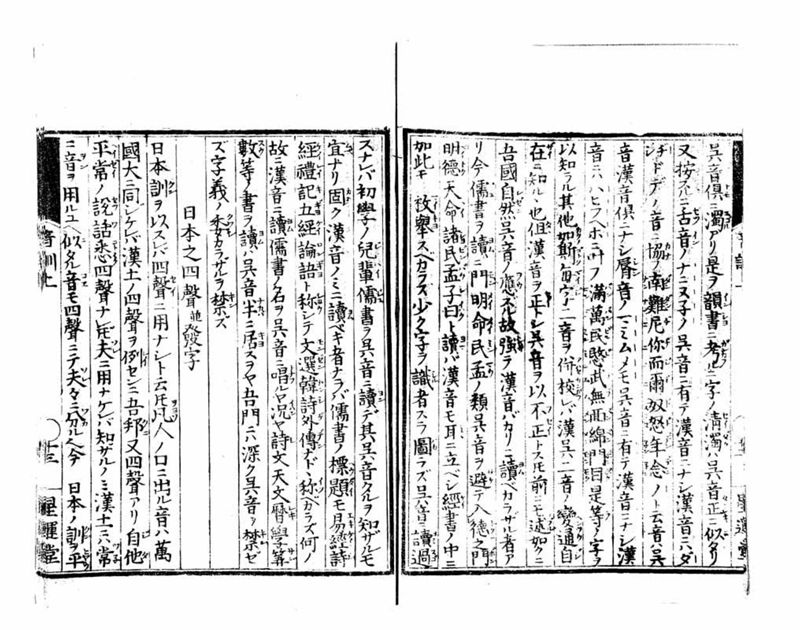 呉音倶ニ濁リ是ヲ韻書ニ考ルニ字ノ清濁ハ呉音正ニ似タリ
又按スルニ舌音ノナニヌ子ノ呉音ニ有テ漢音ニナシ漢音ハダ
ヂドデノ音ニ協フ南難尼你而爾奴怒年念ノト云音呉
音漢音倶ニナシ唇音ノマミムメモ呉音ニ有テ漢音ニナシ漢
音ニハヒフヘホニ叶フ滿萬民愍武無面綿門目是等ノ字ヲ
以知ラル其他如斯毎字ニ二音ヲ併校レバ漢呉二音ノ變通自
在ニ知ル也但漢音ヲ正トシ呉音ヲ以不正トスルモ前ニモ述如クニ
吾國自然呉音ニ應スル故強ヲ漢音バカリニ讀ベカラザル者ア
リ今儒書ヲ讀ニ門明命民孟ノ類呉音ヲ避テ入德之門
明德天命諸民孟子曰ト讀バ漢音モ耳ニ立ベシ經書ノ中ニ
如此モ枚擧スベカラス少ク字ヲ識者スラ圖ラズ呉音ニ讀過
スナレバ初學ノ兒輩儒書ヲ呉音ニ讀デ其呉音タルヲ知ザルモ
宜ナリ固ク漢音ノミニ讀ベキ者ナラバ儒書ノ標題モ易經詩
經禮記五經論語ト称シテ文選韓詩外傳ナド称ベカラズ何ノ
故ニ漢音ニ讀儒書ノ名ヲ呉音ニ唱ルヤ况ヤ詩文天文曆學筭
數等ノ書ヲ讀ハ呉音半ニ居スヲヤ吾門ニハ深ク呉音ヲ禁セ
ズ字義ノ委カラザルヲ禁ズ
日本之四聲並發字
日本訓ヲ以スレバ四聲ニ用ナシト云モ凡人ノ口ニ出ル音ハ萬
國大ニ同シケレバ漢土ノ四聲ヲ例セシニ吾邦又四聲アリ自他
平常ノ説話悉四聲ナレドモ夫ニ用ナケレバ知ザルノミ漢土ニハ常
ニ音ヲ用ルユヘ似タル音モ四聲ニテ夫々ニ分ルヘ今日本ノ訓ヲ平
音訓上
十三
星運堂